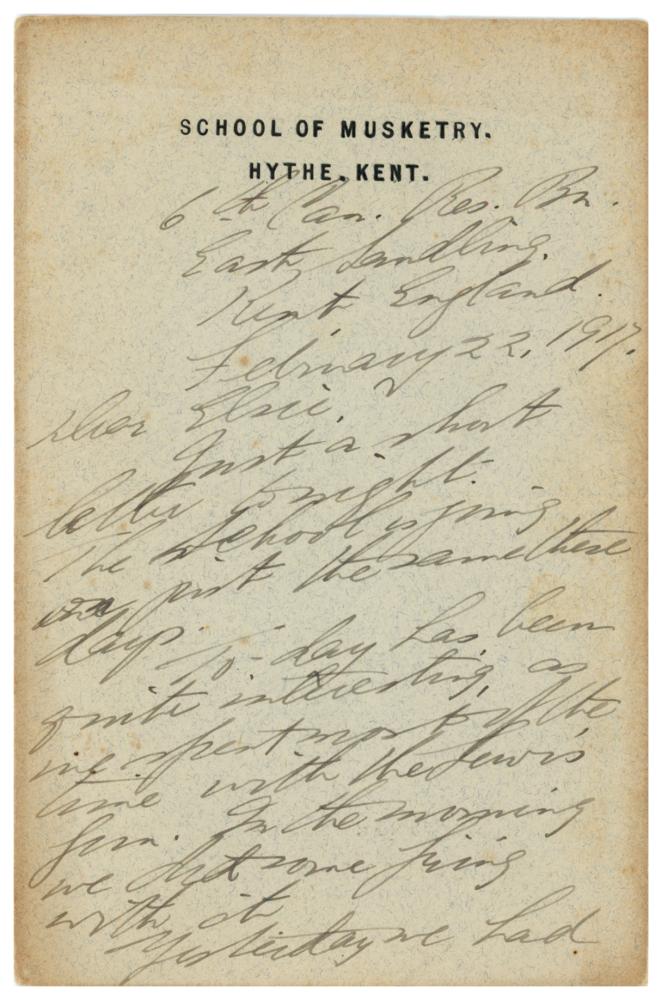 SCHOOL OF MUSKETRY.
HYTHE, KENT.
6th Can. Res. Bn.
East Sandling.
Kent England.
February 22, 1917.
Dear Elsie,
Just a short
letter tonight.
The school is going
on just the same these
days. To-day has been
quite interesting, as
we spent most of the
time with the Lewis
Gun. In the morning
we did some firing
with it
Yesterday we had